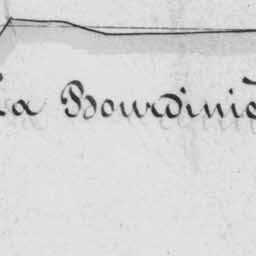 La Bourdinie